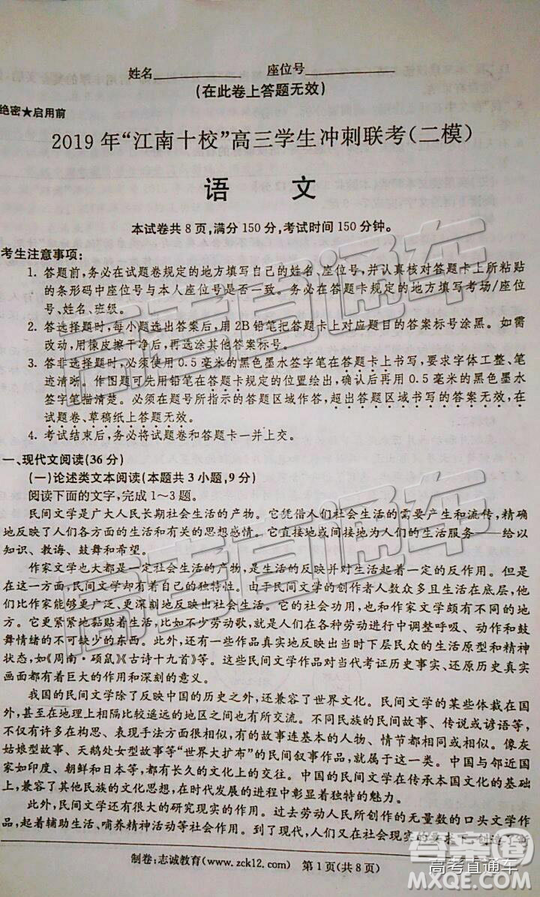 姓名 座位号
(在此卷上答题无效)
绝密★启用前
2019年“江南十校”高三学生冲刺联考(二模)
语 文
本试卷共8页,满分150分,考试时间150分钟。
考生注意事项:
1. 答题前,务必在试题卷规定的地方填写自己的姓名、座位号,并认真核对答题卡上所粘贴
的条形码中座位号与本人座位号是否一致。务必在答题卡规定的地方填写考场/座位
号、姓名、班级。
2. 答选择题时,每小题选出答案后,用2B铅笔把答题卡上对应题目的答案标号涂黑。如需
改动,用橡皮擦干净后,再选涂其他答案标号。
3. 答非选择题时,必须使用0.5毫米的黑色墨水签字笔在答题卡上书写,要求字体工整、笔
迹清晰。作图题可先用铅笔在答题卡规定的位置绘出,确认后再用0.5毫米的黑色墨水
签字笔描清楚。必须在题号所指示的答题区域作答,超出书写的答案无效,在
试题卷、草稿纸上答题无效。
4. 考试结束后,务必将试题卷和答题卡一并上交。
一、现代文阅读(36分)
(一)论述类文本阅读(本题共3小题,9分)
阅读下面的文字,完成1~3题。
民间文学是广大人民长期社会生活的产物。它凭借人们社会生活的需要而产生和流传,精确
地反映了人们各方面的生活和有关的思想感情。它直接或间接地为人们的生活服务——给以
知识、教诲、鼓舞和希望。
作家文学也大都是一定社会生活的产物,是生活的反映并对生活起着一定的反作用。但是
在这一方面,民间文学却有着自己的独特性。由于民间文学的创作者人数众多且生活在底层,他
们比作家能够更广泛、更深刻地反映出社会生活。它的社会功用,也和作家文学颇有不同的地
方。它更紧紧地黏贴着生活,比如不少劳动歌,就是人们在各种劳动进行中调整呼吸、动作和鼓
舞情绪的不可缺少的东西。此外,还有一些作品真实地反映出当时下层民众的生活原型和精神
状态(如《周南·硕鼠》《古诗十九首》等)。这些民间文学作品对当代考证历史真实、还原历史真实
画面都有着巨大的作用和深刻的意义。
我国的民间文学除了反映中国的历史之外,还兼容了世界文化。民间文学的某些体裁在国
内或国际上,常常在相隔比较遥远的地区之间也有类同。不同民族的民间故事、传说或谚语等,
不仅有许多在构思、表现手法方面很类似,有的连故事里基本的人物、情节都相同或相似。像灰
姑娘型故事、天鹅处女型故事等“世界大扩布”的民间叙事作品,就是其中一类。中国与近邻国
家如印度、朝鲜和日本等,都有长久的文化上的交往。中国的民间文学在传承本国文化的基础
上,兼容了其他民族的文化思想,在时代发展的进程中彰显着独特的魅力。
此外,民间文学还有很大的研究现实的作用。过去劳动人民所创作的无量数的口头文学作
品,不但鼓舞劳动生活、哺养精神活动等作用。到了现代,人们又在社会现实
制卷:志诚教育(www.zck12.com) 第1页(共8页)
高考直通车
答案圈
MXQE.COM
高考直通车